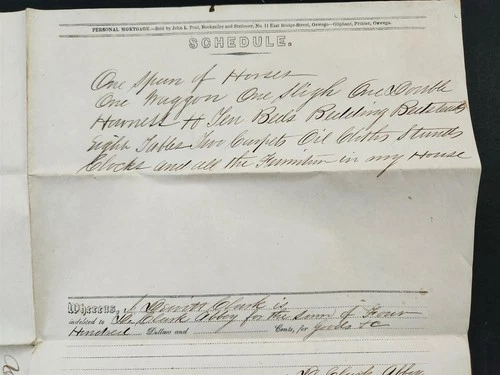 PERSONAL MORTGAGE—Sold by John L. Pool, Bookseller and Stationer, No. 11 East Bridge-Street, Oswego—Oliphant, Printer, Oswego.
SCHEDULE.
One Span of Horses
One Waggon One Sleigh One Double
Harness Ten Beds Bedding Bedsteads
Eight Tables Two Carpets Oil Cloths Stands
Clocks and all the Furniture in my House
Whereas, I Clark is
indebted to Clark Abby for the sum of Four
Hundred Dollars and Cents, for goods &C
Clark Abby